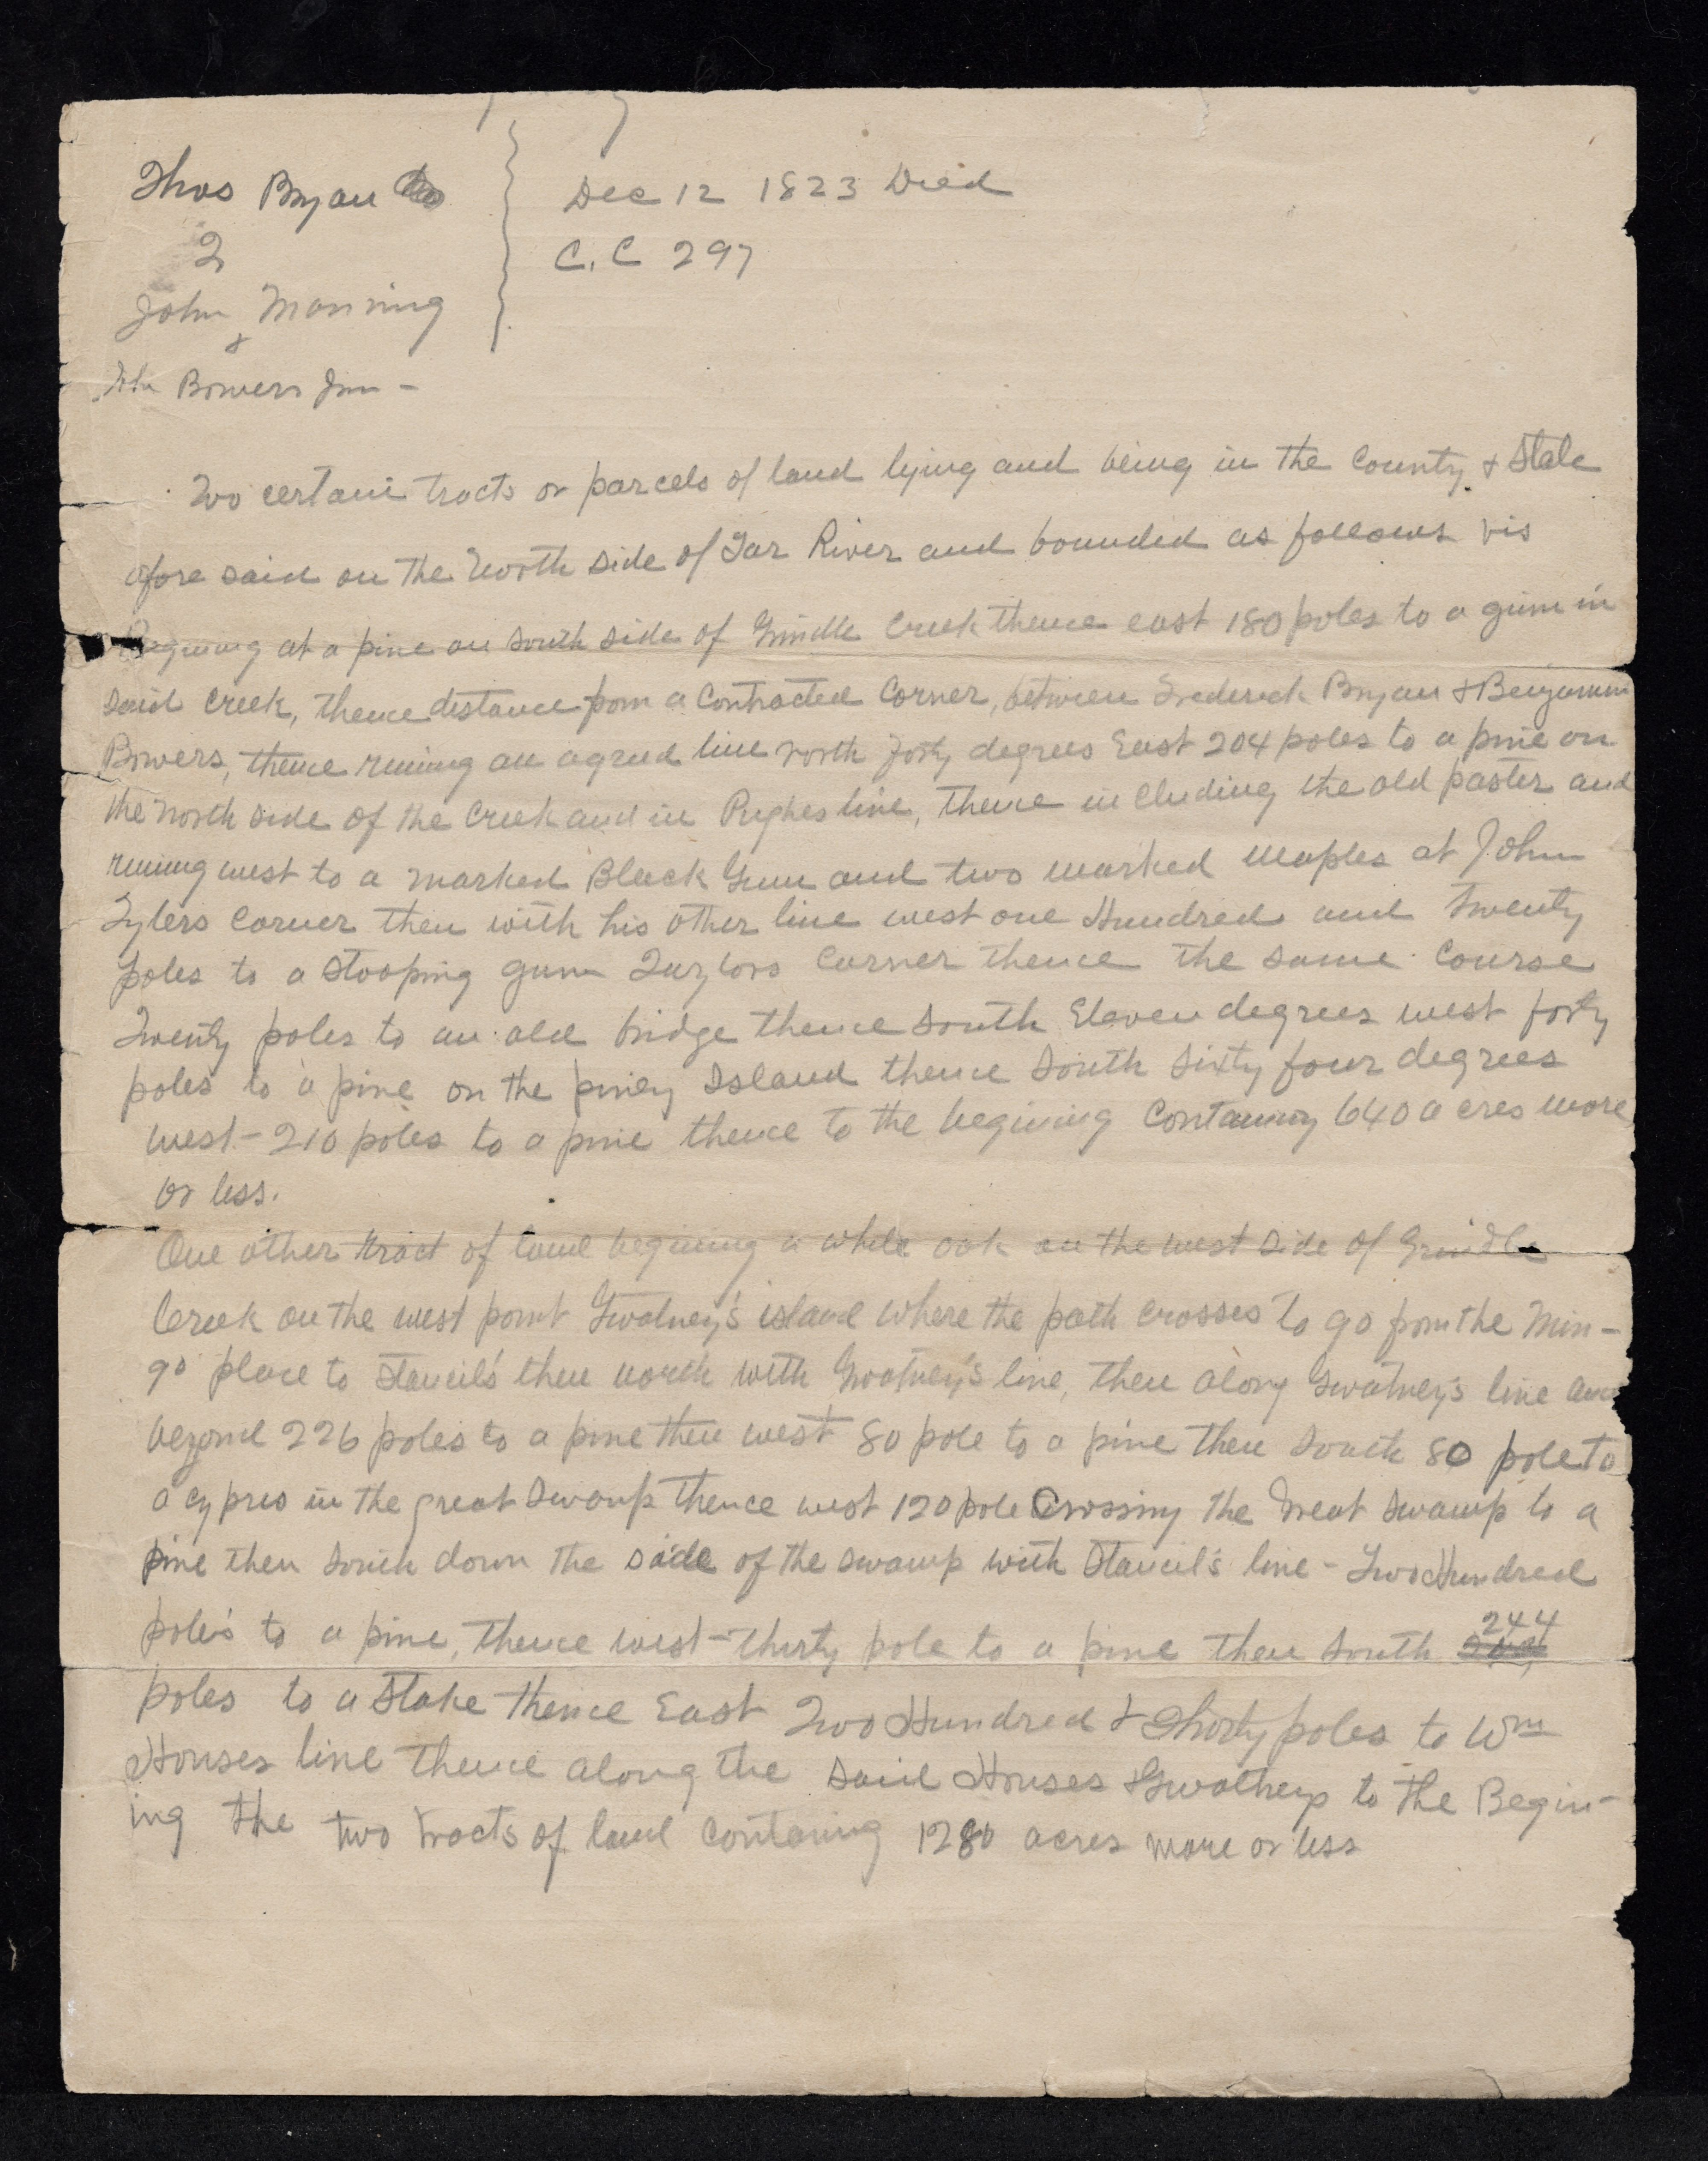 Thos Bryan to
2
John Manning
&
Jno Bowers Jun -
Dec 12 1823 Died
C. C 297
Two certain tracts or parcels of land lying and being in the County & State
afore said on the North side of Tar River and bounded as follows vis
Begining at a pine on south side of Grindle Creek thence east 180 poles to a gum in
said creek, thence distance from a Contracted Corner, between Frederick Bryan & Benjamin
Bowers, thence runing an agreed line north forty degrees East 204 poles to a pine on
the north side of the Creek and in Pughes line, thence in cluding the old paster and
runing west to a marked Black Gum and two marked maples at John
Tylers Corner then with his other line west one Hundred and Twenty
poles to a stooping gum Taylors Corner thence the same course
Twenty poles to an old bridge thence South Eleven degrees west forty
poles to a pine on the piney Island thence South Sixty four degrees
west - 210 poles to a pine thence to the begining Containing 640 acres more
or less.
One other tract of land begining a white oak on the west side of Grindle
Creek on the west point Gwatney's island where the path crosses to go from the Min-
go place to Stancil's then north with Gwatney's line, then along Gwatney's line and
beyond 226 poles to a pine then west 80 pole to a pine then South 80 pole to
a cypres in the great Swamp thence west 120 pole Crossing the Great Swamp to a
pine then South down the side of the swamp with Stancil's line - Two Hundred
poles to a pine, thence west - thirty pole to a pine then South 244
poles to a Stake thence East Two Hundred & thirty poles to Wm
Houses line thence along the said Houses & Gwatneys to the Begin-
ing the two tracts of land containing 1280 acres more or less